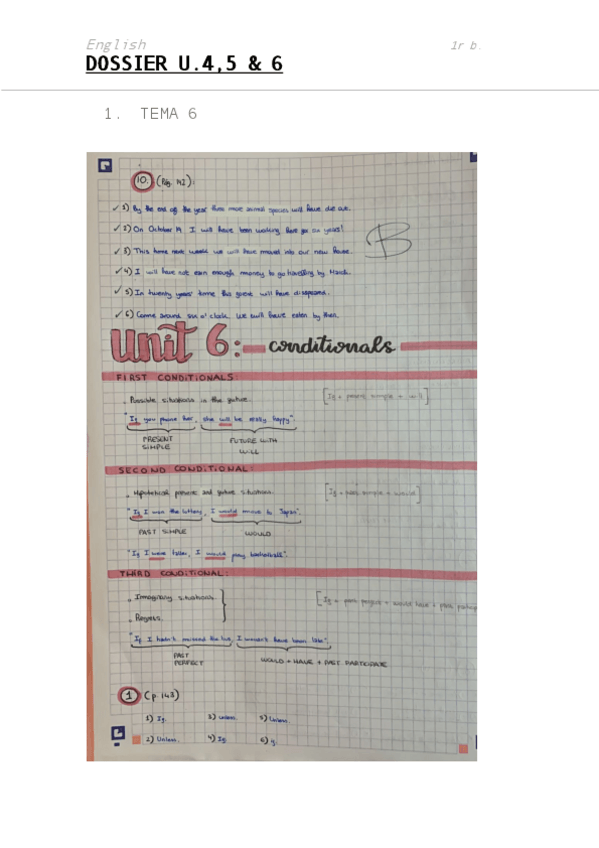 English
1r b.
DOSSIER U.4,5 & 6
1. TEMA 6
10. (Pág. 142):
✓ 1) By the end of the year three more animal species will have die out.
✓ 2) On October 14 I will have been working here for six years!
✓ 3) This time next week we will have moved into our new house.
✓ 4) I will have not earn enough money to go travelling by March.
✓ 5) In twenty years' time this forest will have disappeared.
✓ 6) Come around six o'clock. We will have eaten by then.
B
Unit 6: conditionals
FIRST CONDITIONALS:
. Possible situations in the future.
[If + present simple + will]
"If you phone her, she will be really happy".
PRESENT SIMPLE
FUTURE WITH WILL
SECOND CONDITIONAL:
. Hypothetical present and future situations.
[If + past simple + would]
"If I won the lottery, I would move to Japan".
PAST SIMPLE
WOULD
"If I were taller, I would play basketball".
THIRD CONDITIONAL:
. Imaginary situations.
[If + past perfect + would have + past particip
. Regrets.
"If I hadn't missed the bus, I wouldn't have been late".
PAST PERFECT
WOULD + HAVE + PAST PARTICIPATE
1 (p. 143)
1) If. 3) Unless. 5) Unless.
2) Unless. 4) If. 6) If.